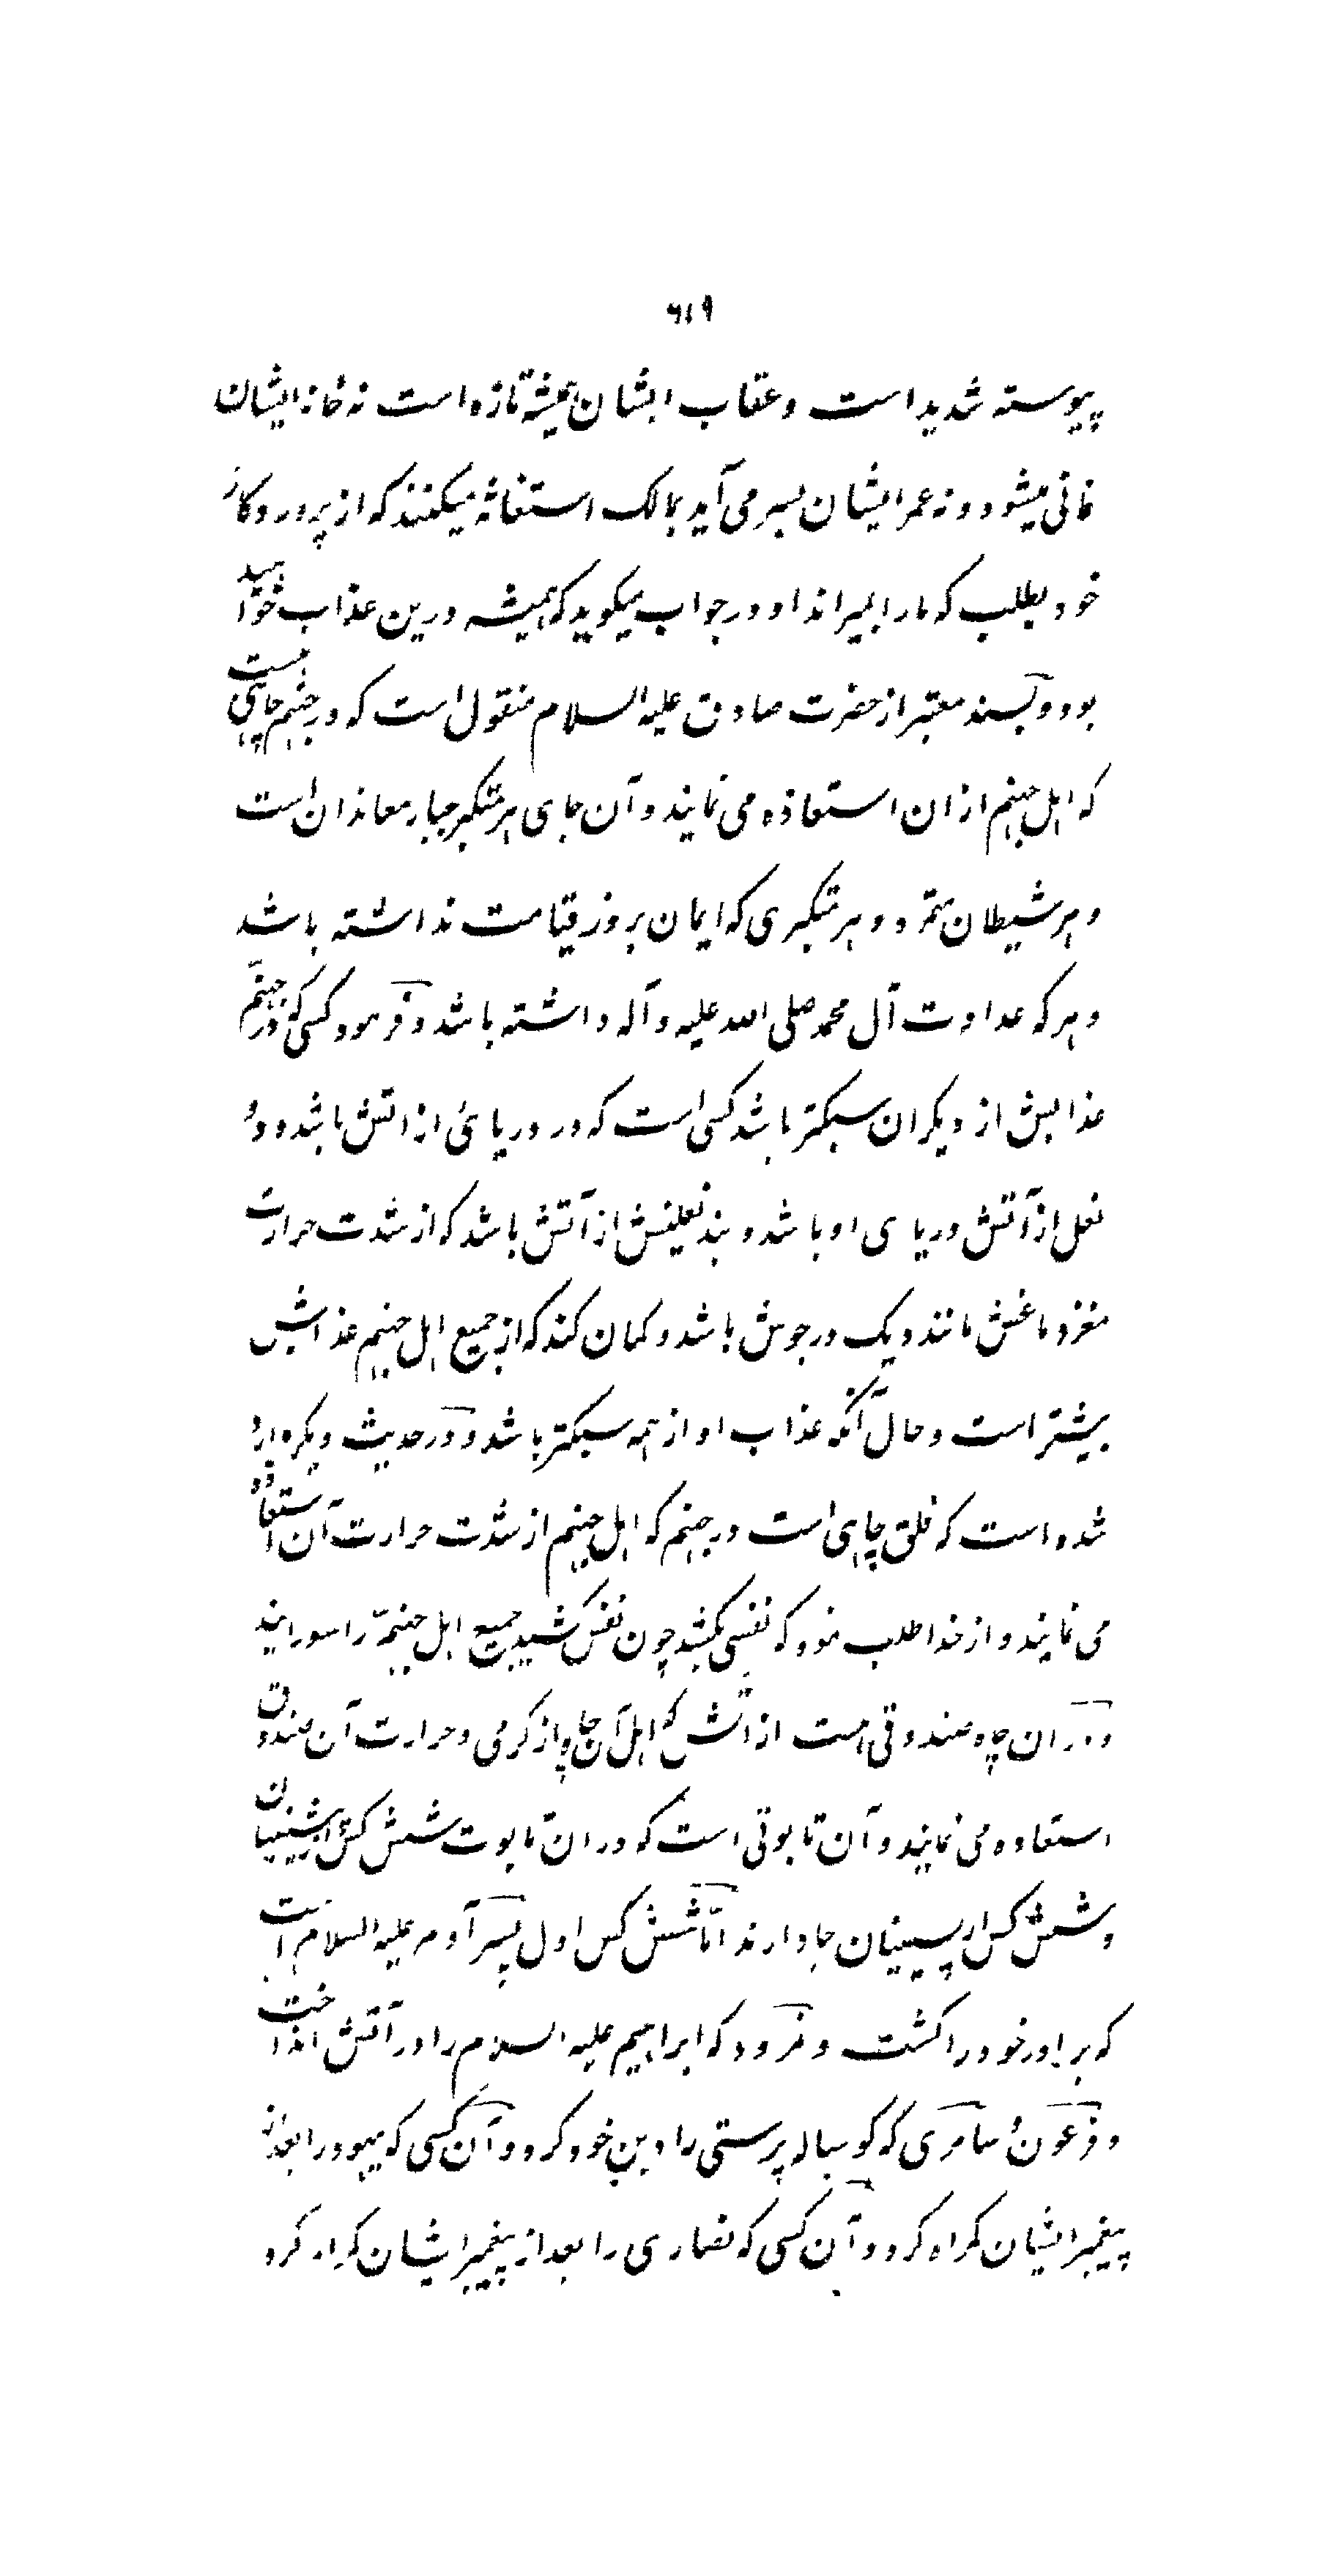 ٦١٩
پیوسته شدید است و عقاب ایشان همیشه تازه است نه خانه ایشان
فانی میشود و نه عمر ایشان بسر می آید بمالک استغاثه میکنند که از پروردکار
خود بطلب که ما را بمیراند او در جواب میکوید که همیشه درین عذاب خواهید
بود و بسند معتبر از حضرت صادق علیه السلام منقول است که در جهنم چاهی هست
که اهل جهنم از ان استعاذه می نمایند و آن جای هر متکبر جبار معاند ان است
و هر شیطان متمرد و هر متکبری که ایمان بروز قیامت نداشته باشد
و هر که عداوت آل محمد صلی الله علیه و آله داشته باشد و فرمود کسی که در جهنم
عذابش از دیکران سبکتر باشد کسی است که در دریائی از اتش باشد و دو
نعل از آتش در پای او باشد و بند نعلینش از آتش باشد که از شدت حرارت
مغز دماغش مانند دیک در جوش باشد و کمان کند که از جمیع اهل جهنم عذابش
بیشتر است و حال آنکه عذاب او از همه سبکتر باشد و در حدیث دیکر وارد
شده است که فلق چاهی است در جهنم که اهل جهنم از شدت حرارت آن استعاذه
می نمایند و از خدا طلب نمود که نفسی بکشد چون نفس کشید جمیع اهل جهنم را سوزانید
و در ان چاه صندوقی است از اتش که اهل آن چاه از کرمی و حرارت آن صندوق
استعاذه می نمایند و آن تابوتی است که در ان تابوت شش کس از پیشینیان
و شش کس از پسینیان جا دارند امّا شش کس اول پسر آدم علیه السلام است
که برادر خود را کشت و نمرود که ابراهیم علیه السلام را در آتش انداخت
و فرعون و سامری که کوساله پرستی را دین خود کرد و آن کسی که یهود را بعد از
پیغمبر ایشان کمراه کرد و آن کسی که نصاری را بعد از پیغمبر ایشان کمراه کرد